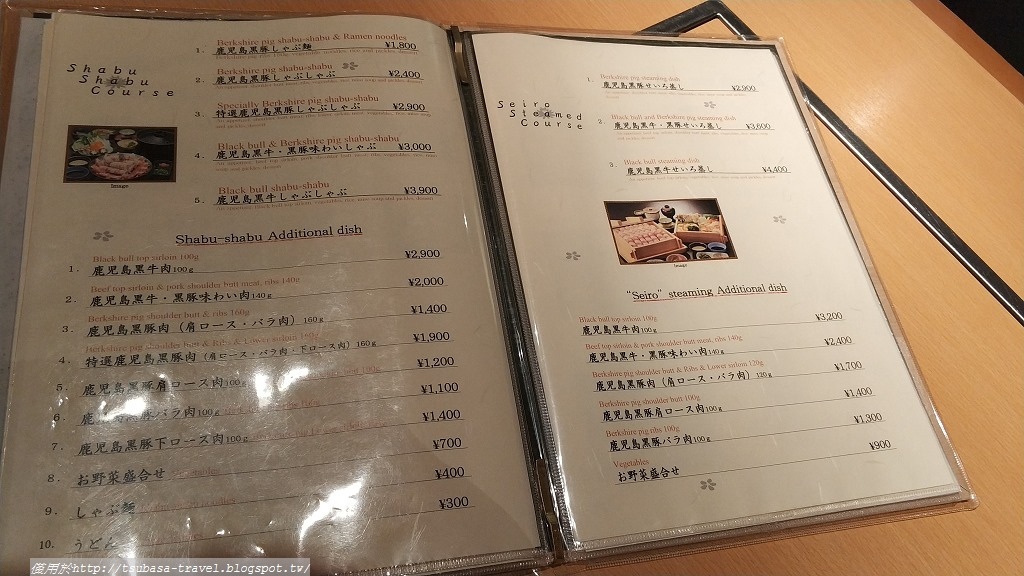 Shabu
Shabu
Course
1. Berkshire pig shabu-shabu & Ramen noodles
鹿児島黒豚しゃぶ麺 ¥1,800
2. Berkshire pig shabu-shabu
鹿児島黒豚しゃぶしゃぶ ¥2,400
3. Specially Berkshire pig shabu-shabu
特選鹿児島黒豚しゃぶしゃぶ ¥2,900
4. Black bull & Berkshire pig shabu-shabu
鹿児島黒牛・黒豚味わいしゃぶ ¥3,000
5. Black bull shabu-shabu
鹿児島黒牛しゃぶしゃぶ ¥3,900
Image
Shabu-shabu Additional dish
Black bull top sirloin 100g
1. 鹿児島黒牛肉100g ¥2,900
Beef top sirloin & pork shoulder butt meat, ribs 140g
2. 鹿児島黒牛・黒豚味わい肉140g ¥2,000
Berkshire pig shoulder butt & ribs 160g
3. 鹿児島黒豚肉（肩ロース・バラ肉）160g ¥1,400
Berkshire pig shoulder butt & Ribs & Lower sirloin 160g
4. 特選鹿児島黒豚肉（肩ロース・バラ肉・下ロース肉）160g ¥1,900
5. 鹿児島黒豚肩ロース肉100g ¥1,200
6. 鹿児島黒豚バラ肉100g ¥1,100
7. 鹿児島黒豚下ロース肉100g ¥1,400
8. お野菜盛合せ ¥700
9. しゃぶ麺 ¥400
10. うどん ¥300
Seiro
Steamed
Course
1. Berkshire pig steaming dish
鹿児島黒豚せいろ蒸し ¥2,900
2. Black bull and Berkshire pig steaming dish
鹿児島黒牛・黒豚せいろ蒸し ¥3,600
3. Black bull steaming dish
鹿児島黒牛せいろ蒸し ¥4,400
Image
"Seiro" steaming Additional dish
Black bull top sirloin 100g
鹿児島黒牛肉100g ¥3,200
Beef top sirloin & pork shoulder butt meat, ribs 140g
鹿児島黒牛・黒豚味わい肉140g ¥2,400
Berkshire pig shoulder butt & Ribs & Lower sirloin 120g
鹿児島黒豚肉（肩ロース・バラ肉）120g ¥1,700
Berkshire pig shoulder butt 100g
鹿児島黒豚肩ロース肉100g ¥1,400
Berkshire pig ribs 100g
鹿児島黒豚バラ肉100g ¥1,300
Vegetables
お野菜盛合せ ¥900
僅用於http://tsubasa-travel.blogspot.tw/